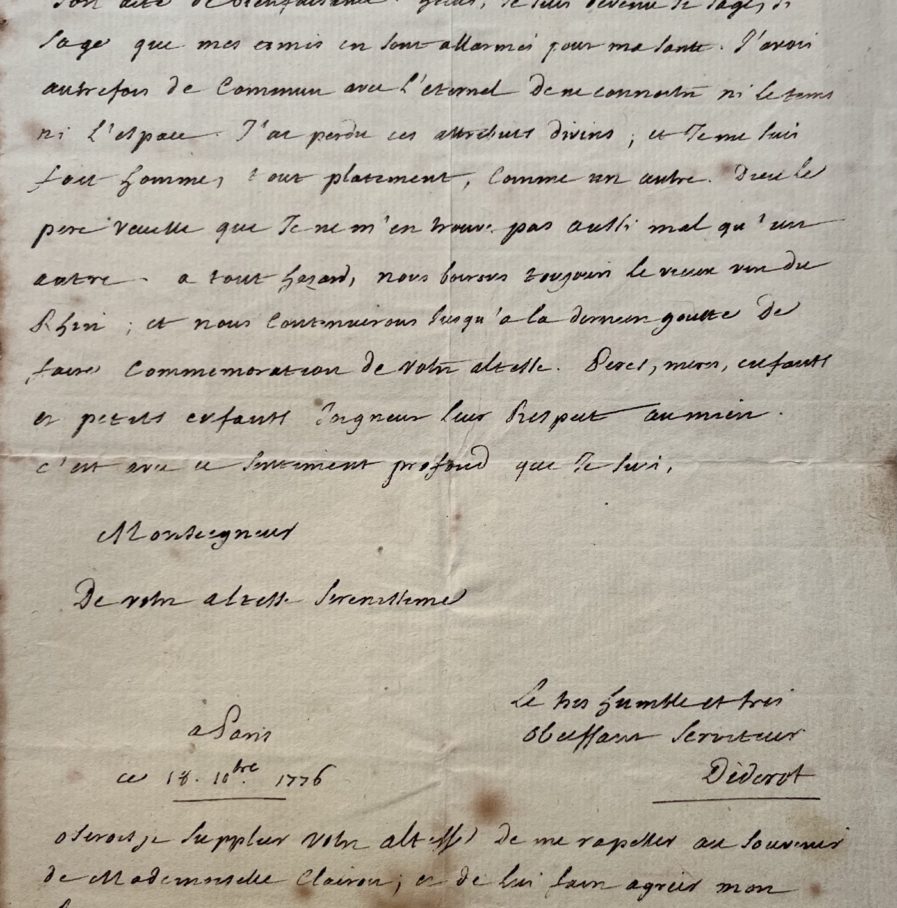 son acte de bienfaisance. helas, Je suis devenu si sage, si
sage que mes amis en sont allarmés pour ma santé. J'avois
autrefois de commun avec l'éternel de ne connoitre ni le tems
ni l'espace. J'ai perdu ces attributs divins; et Je me suis
fait homme, tout platement, comme un autre. Dieu le
pere veuille que Je ne m'en trouve pas aussi mal qu'un
autre. a tout hazard, nous boirons toujours le vieux vin du
Rhin; et nous continuerons Jusqu'a la derniere goutte de
faire commemoration de votre altesse. Peres, meres, enfants
et petits enfants Joignent leur Respect au mien.
c'est avec ce sentiment profond que Je suis,
Monseigneur
De votre altesse serenissime
Le tres humble et tres
obeissant serviteur
Diderot
a Paris
ce 18. 10bre. 1776
oserois-je supplier votre altesse de me rapeller au souvenir
de Mademoiselle Clairon; et de lui faire agréer mon